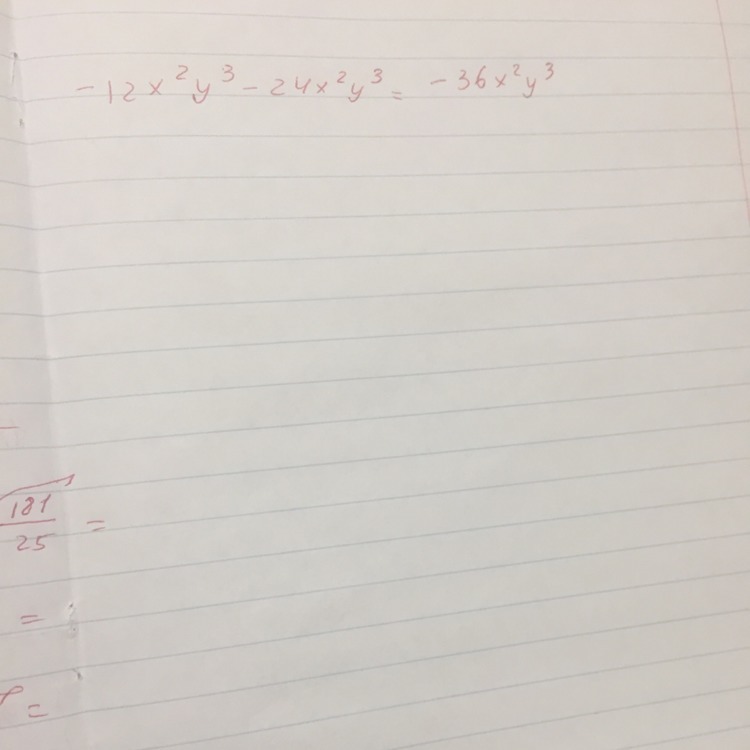 -12x²y³ - 24x²y³ = -36x²y³
181
25 =
=
=